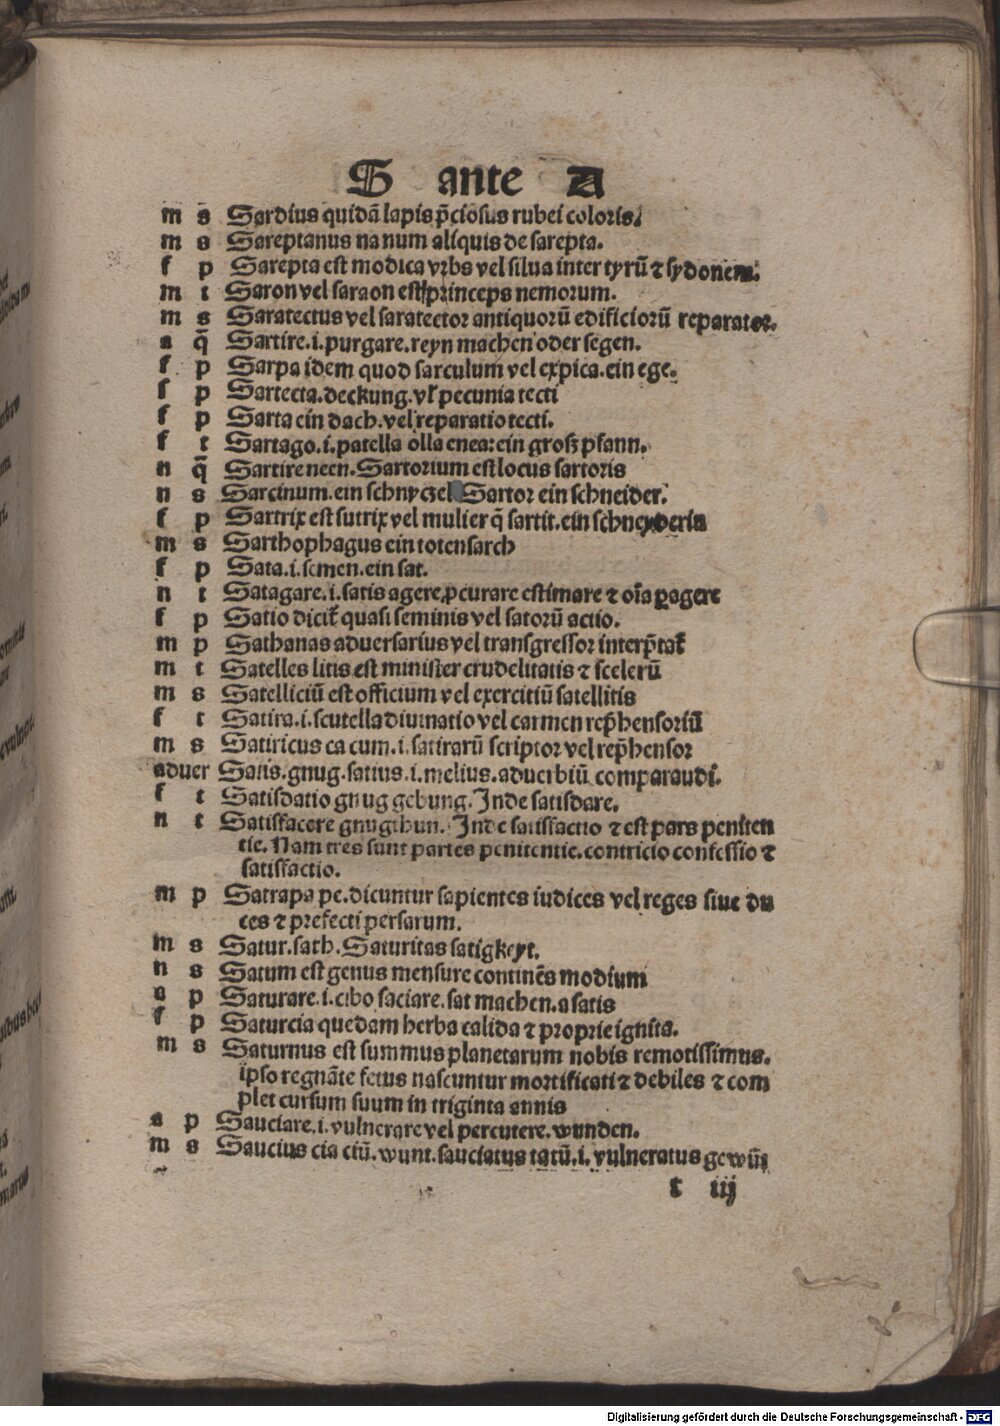 S ante A
m s Sardius quidā lapis p̄ciosus rubei coloris.
m s Sareptanus na num aliquis de sarepta.
f p Sarepta est modica vrbs vel silua inter tyrū ⁊ sydonem.
m t Saron vel saraon est princeps nemorum.
m s Saratectus vel saratector antiquorū edificiorū reparator.
a q̄ Sartire.i.purgare.reyn machen oder segen.
f p Sarpa idem quod sarculum vel expica.ein ege.
f p Sartecta.deckung.vl' pecunia tecti
f p Sarta ein dach.vel reparatio tecti.
f t Sartago.i.patella olla enea:ein groß pfann.
n q̄ Sartire neen.Sartorium est locus sartoris
n s Sarcinum.ein schnyczel Sartor ein schneider.
f p Sartrix est sutrix vel mulier q̄ sartit.ein schneyderin
m s Sarthophagus ein totensarch
f p Sata.i.semen.ein sat.
n t Satagare.i.satis agere,ꝓcurare estimare ⁊ oīa ꝑagere
f p Satio dicit̄ quasi seminis vel satorū actio.
m p Sathanas aduersarius vel transgressor interp̄tat̄
m t Satelles litis est minister crudelitatis ⁊ scelerū
m s Satelliciū est officium vel exercitiū satellitis
f t Satira.i.scutella diuinatio vel carmen rep̄hensoriū
m s Satiricus ca cum.i.satirarū scriptor vel rep̄hensor
aduer Satis.gnug.satius.i.melius.aduerbiū comparandi.
f t Satisdatio gnug gebung.Inde satisdare.
n t Satisfacere gnugthun. Inde satisfactio ⁊ est pars peniten
tie.Nam tres sunt partes penitentie.contricio confessio ⁊
satisfactio.
m p Satrapa pe.dicuntur sapientes iudices vel reges siue du
ces ⁊ prefecti persarum.
m s Satur.sath.Saturitas satigkeyt.
n s Satum est genus mensure continēs modium
a p Saturare.i.cibo saciare.sat machen.a satis
f p Saturcia quedam herba calida ⁊ proprie ignita.
m s Saturnus est summus planetarum nobis remotissimus.
ipso regnāte fetus nascuntur mortificati ⁊ debiles ⁊ com
plet cursum suum in triginta annis
a p Sauciare.i.vulnerare vel percutere.wunden.
m s Saucius cia ciū.wunt.sauciatus tatū.i.vulneratus gewūt
t iij
Digitalisierung gefördert durch die Deutsche Forschungsgemeinschaft - DFG